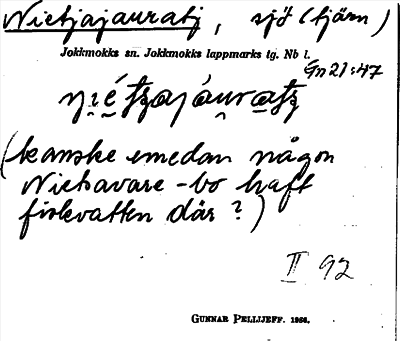 Nietjajauratj, sjö (tjärn)
Jokkmokks sn. Jokkmokks lappmarks tg. Nb l.
Gn 21:47
(kanske emedan någon
Nietsavare-bo haft
fiskevatten där?)
II 92
GUNNAR PELLIJEFF. 1956.